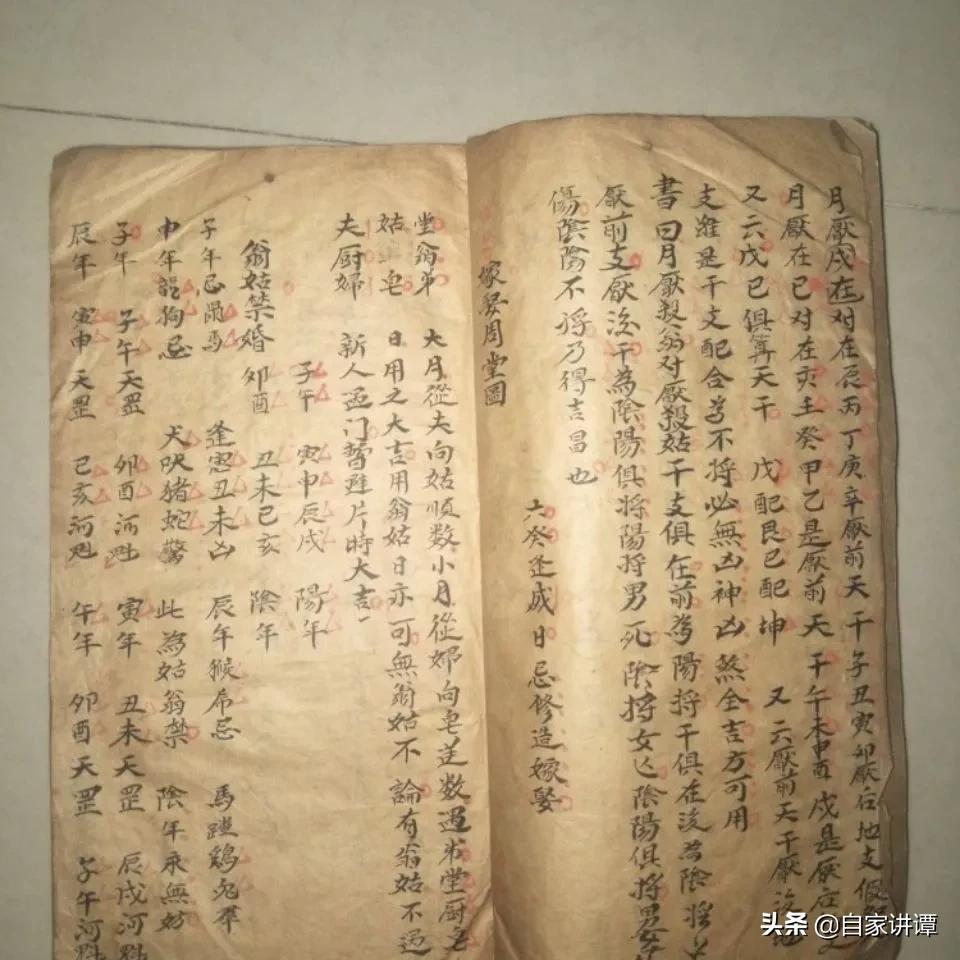 月厭戌在对在辰丙丁庚辛厭前天干子丑寅卯厭后地支
月厭在巳对在亥壬癸甲乙是厭前天干午未申酉戌是厭后
又云戊己俱算天干 戊配艮己配坤 又云厭前天干厭後
支雖是干支配合為不将必無凶神凶煞全吉方可用
書曰月厭殺翁对厭殺姑干支俱在前為陽将干俱在後為陰将
厭前支厭後干為陰陽俱将陽将男死陰将女亡陰陽俱将男
傷陰陰不将乃得吉昌也
六癸逢成日忌修造嫁娶
嫁娶周堂圖
堂翁弟
姑 皂
夫厨婦
大月從夫向姑順数小月從婦向皂逆数遇弟堂厨皂
日用之大吉用翁姑日亦可無翁姑不論有翁姑不過
新人過门暫避片時大吉
子午 寅申辰戌 陽年
翁姑禁婚 卯酉 丑未巳亥 陰年
子年忌鼠馬 逢寅丑未凶 辰年猴帋忌 馬蹤鷄兔羣
申年龍狗忌 犬吠猪蛇驚 此為姑翁禁 陰年永無妨
子年 子午天罡 卯酉河魁 寅年 丑未天罡 辰戌河魁
辰年 寅申天罡 巳亥河魁 午年 卯酉天罡 子午河魁
头条 @自家讲谭